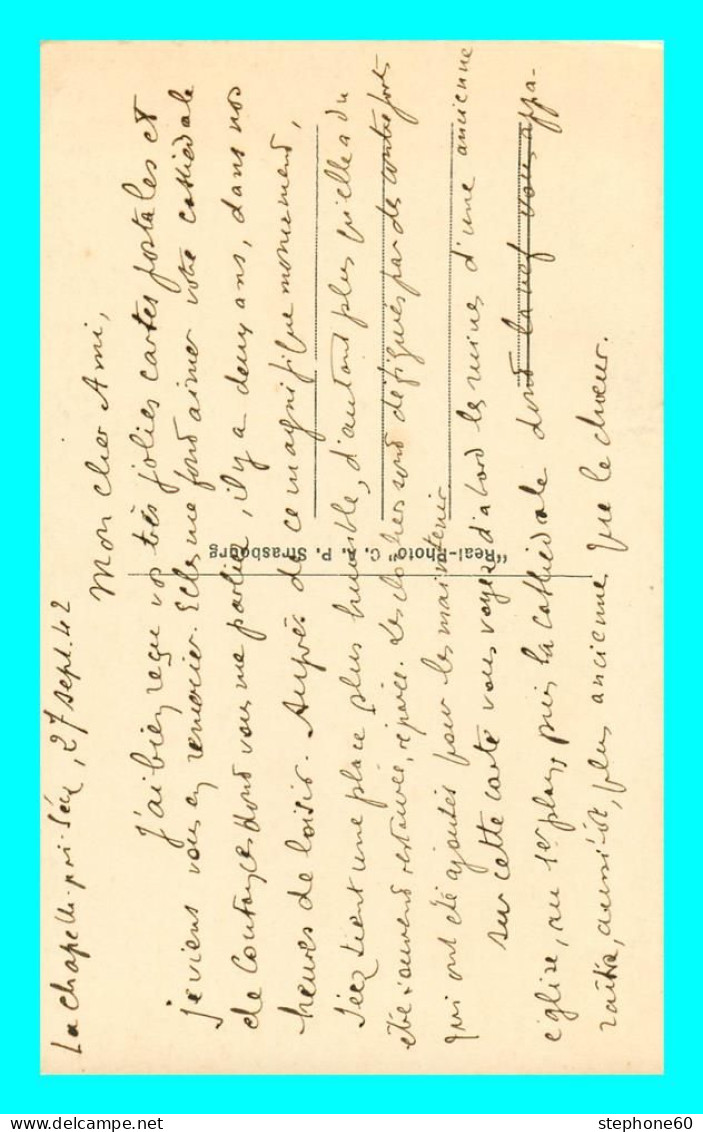 La Chapelle-près-Séez, 27 sept. 42
Mon cher Ami,
J'ai bien reçu vos très jolies cartes postales et
je viens vous en remercier. Elles me font aimer votre cathédrale
de Coutances dont vous me parliez, il y a deux ans, dans nos
heures de loisir. Auprès de ce magnifique monument,
Séez tient une place plus humble, d'autant plus qu'elle a du
être souvent restaurée, réparée. Les clochers sont défigurés par des contreforts
qui ont été ajoutés pour les maintenir.
Sur cette carte vous voyez d'abord les ruines d'une ancienne
église, au 1er plan, puis la cathédrale dont la nef vous appa-
raîtra, aussitôt, plus ancienne que le chœur.
"Real-Photo" C. A. P. Strasbourg
stephone60